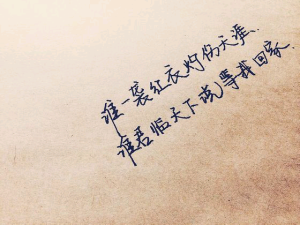 谁一袭红衣灼伤天涯.
谁君临天下说等我回家.